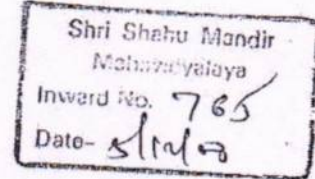 Shri Shahu Mandir
Mahavidyalaya
Inward No. 765
Date-